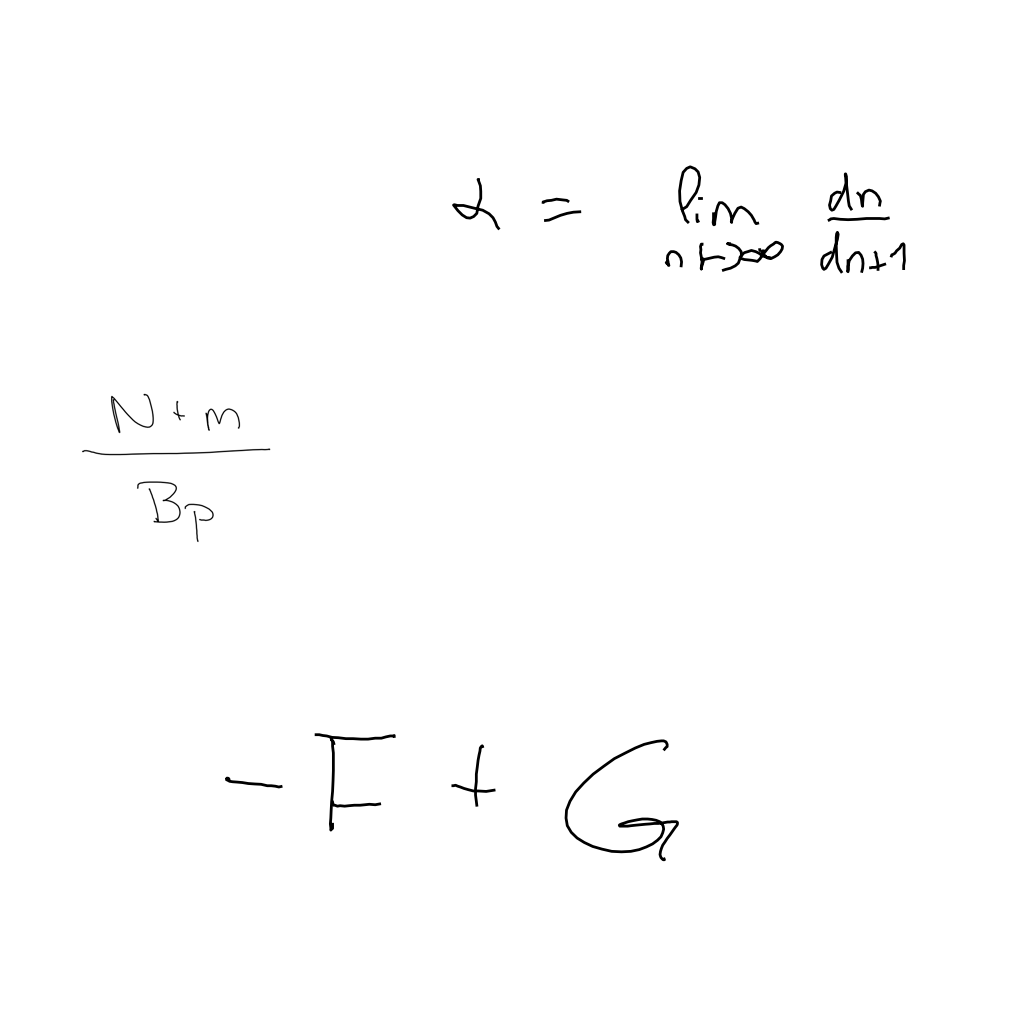 α = lim_{n↦∞} \frac{dn}{dn+1}
\frac{N+m}{B_p}
-F + G